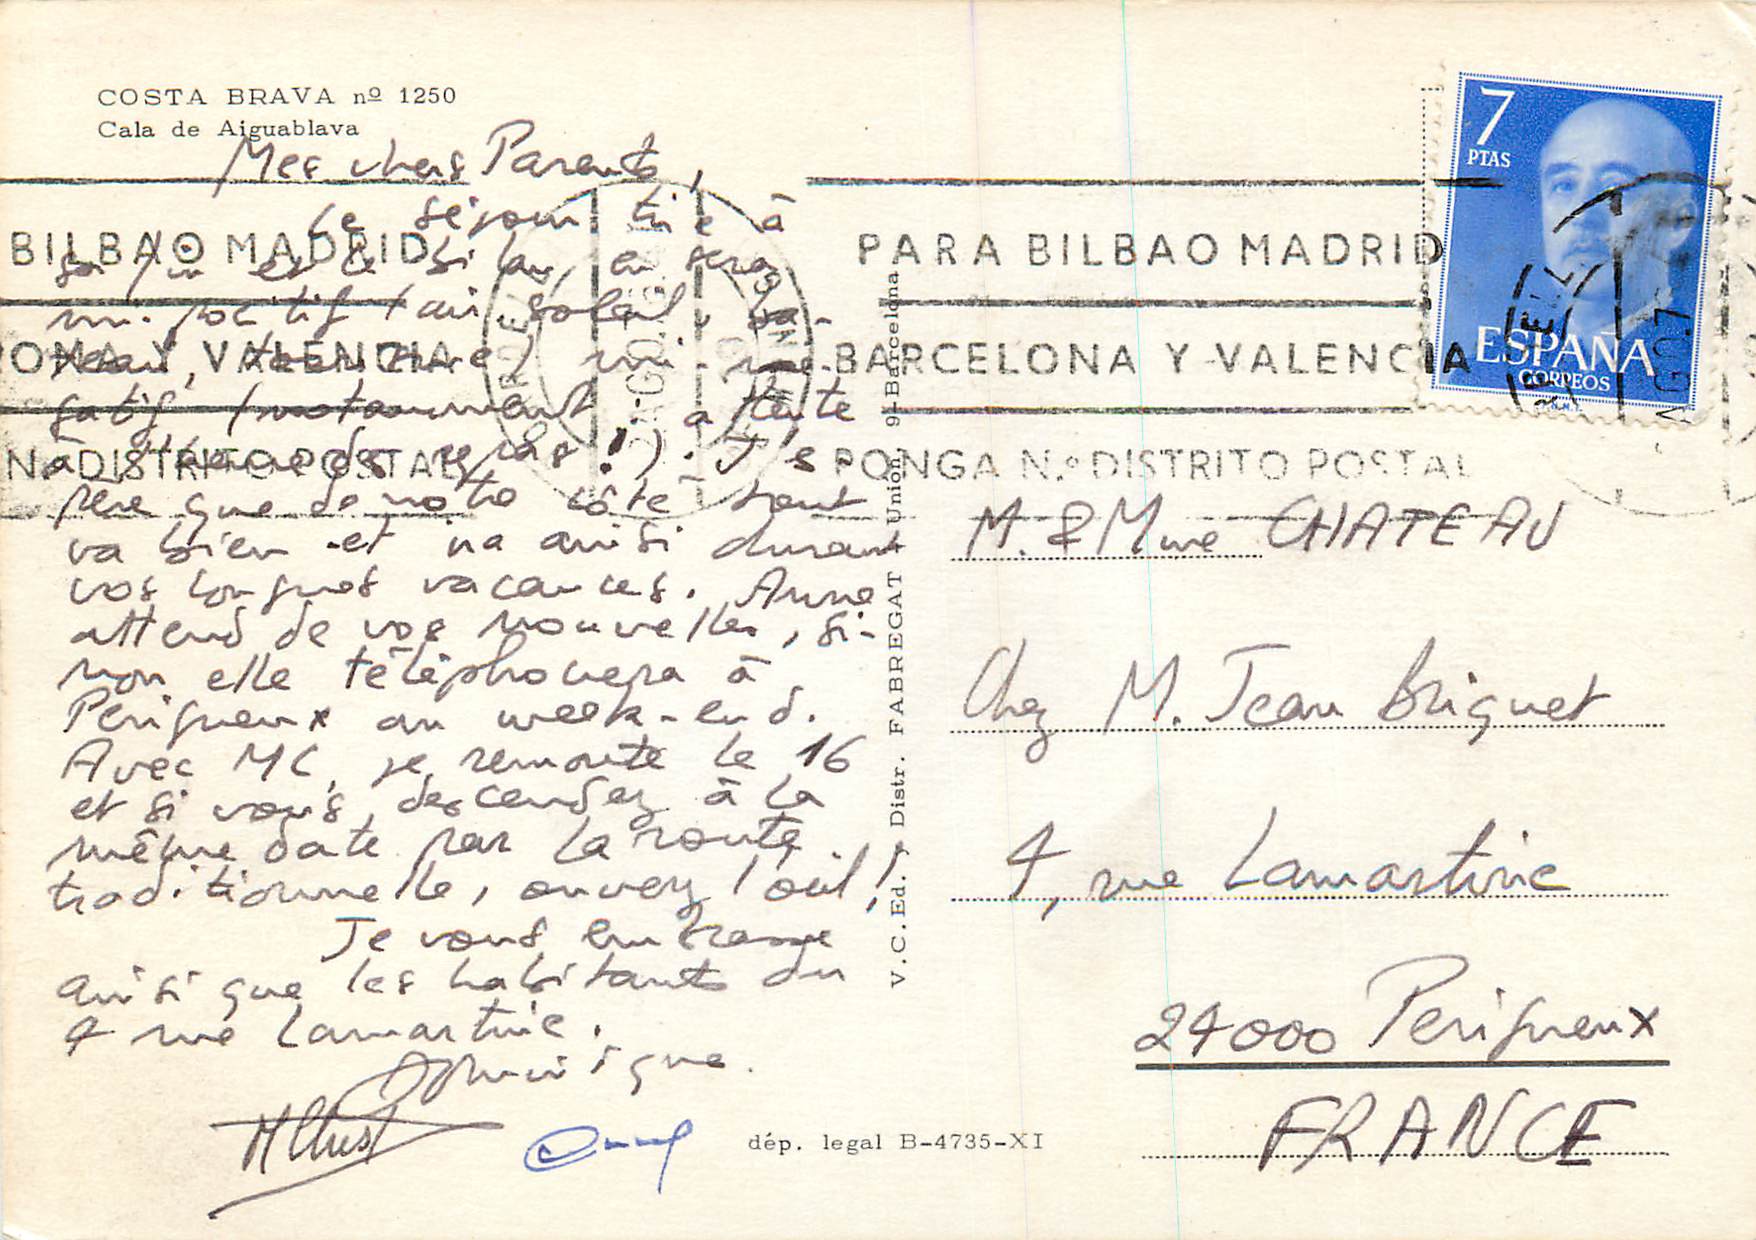 COSTA BRAVA nº 1250
Cala de Aiguablava
Mes chers Parents,
Le séjour tire à
sa fin et le bilan en sera
mi-positif (air, soleil, ba-
teau,) mi-né-
gatif (notamment attente
à l'heure des repas!). J'es-
père que de votre côté tout
va bien et ira ainsi durant
vos longues vacances. Anne
attend de vos nouvelles, si-
non elle téléphonera à
Périgueux au week-end.
Avec MC, je remonte le 16
et si vous descendez à la
même date par la route
traditionnelle, ouvrez l'œil!
Je vous embrasse
ainsi que les habitants du
4 rue Lamartine.
Dominique.
BILBAO MADRID
ONA Y VALENCIA
Nº DISTRITO POSTAL
PARA BILBAO MADRID
BARCELONA Y VALENCIA
PONGA N.º DISTRITO POSTAL
7
PTAS
ESPAÑA
CORREOS
F.N.M.T.
M. & Mme CHATEAU
Chez M. Jean Briquet
4, rue Lamartine
24000 Périgueux
FRANCE
V.C.Ed. Distr. FABREGAT Unión, 9-Barcelona
dép. legal B-4735-XI